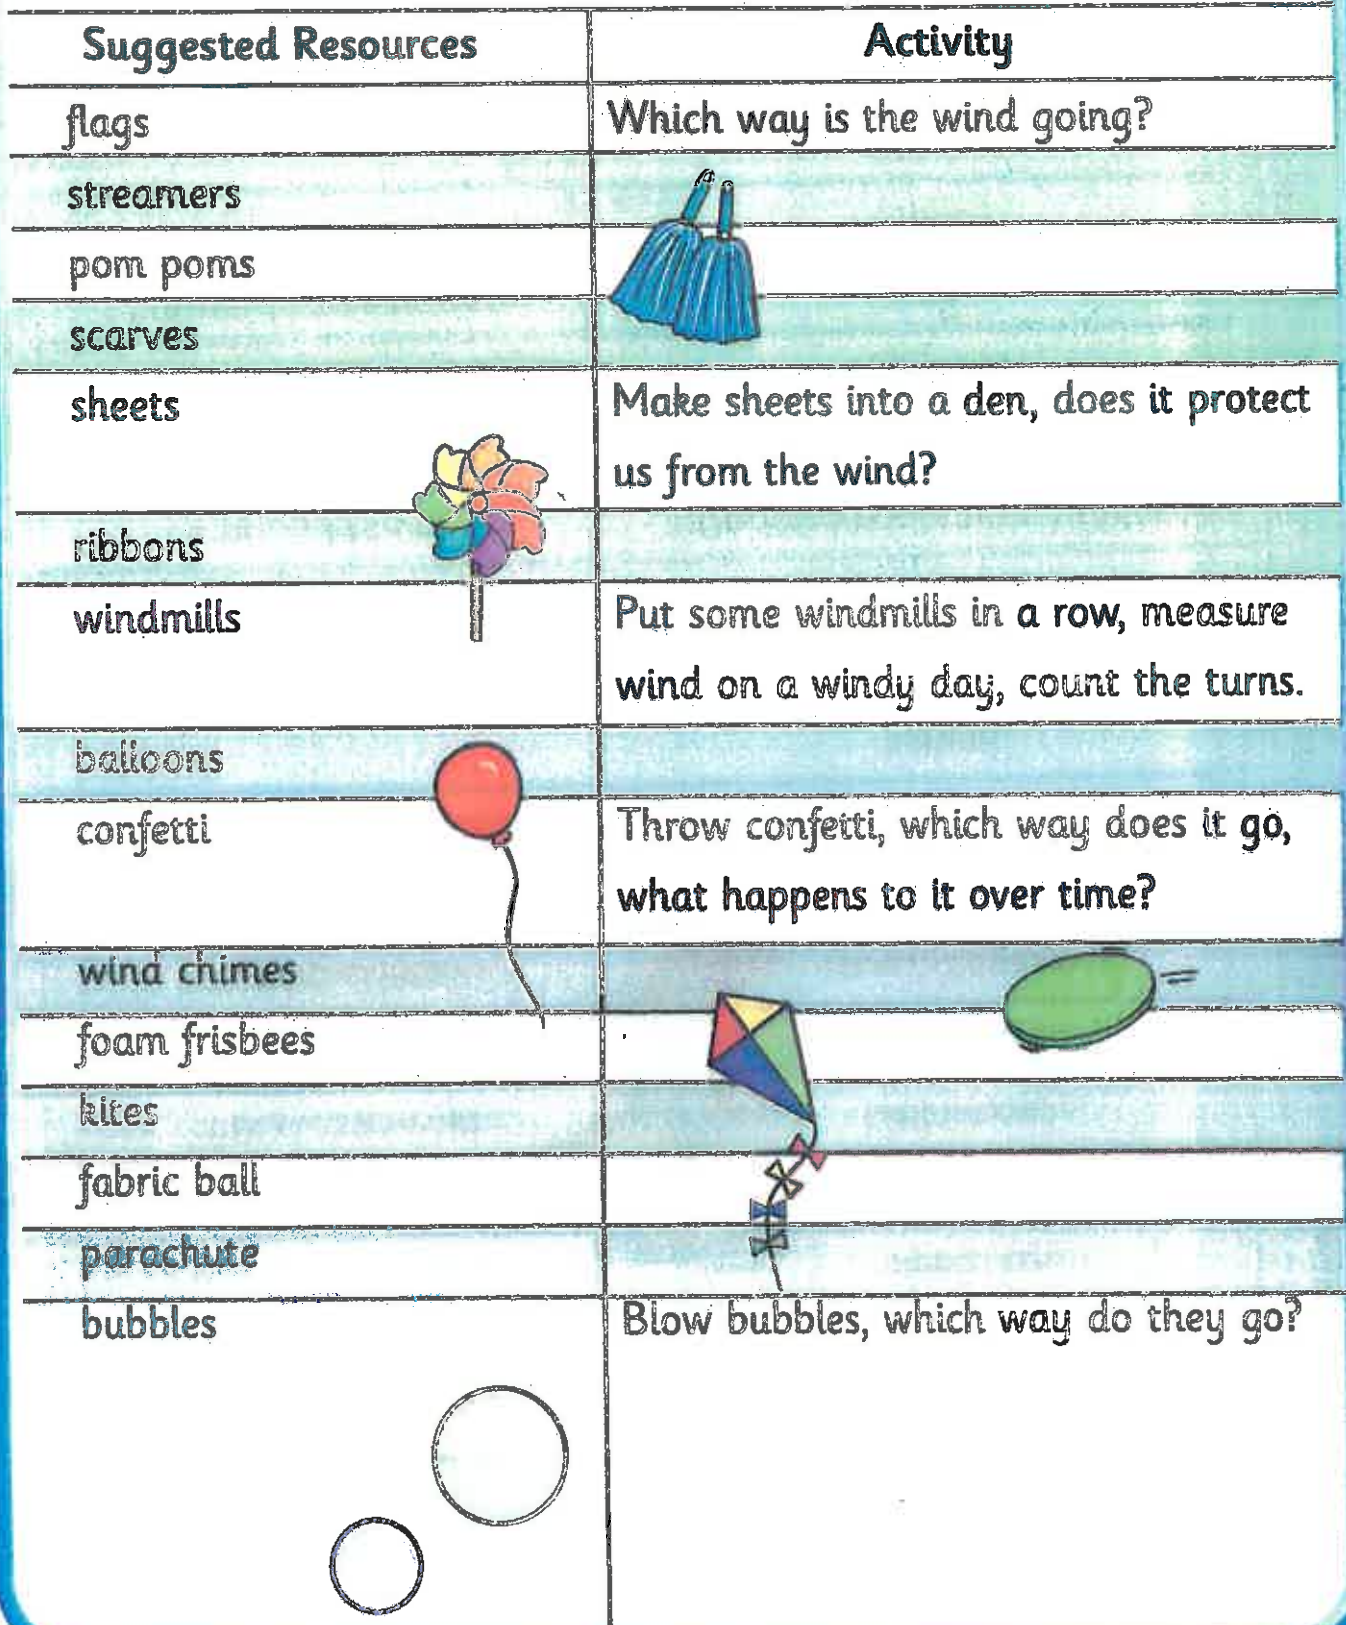 Suggested Resources Activity
flags Which way is the wind going?
streamers
pom poms
scarves
sheets Make sheets into a den, does it protect
us from the wind?
ribbons
windmills Put some windmills in a row, measure
wind on a windy day, count the turns.
balloons
confetti Throw confetti, which way does it go,
what happens to it over time?
wind chimes
foam frisbees
kites
fabric ball
parachute
bubbles Blow bubbles, which way do they go?